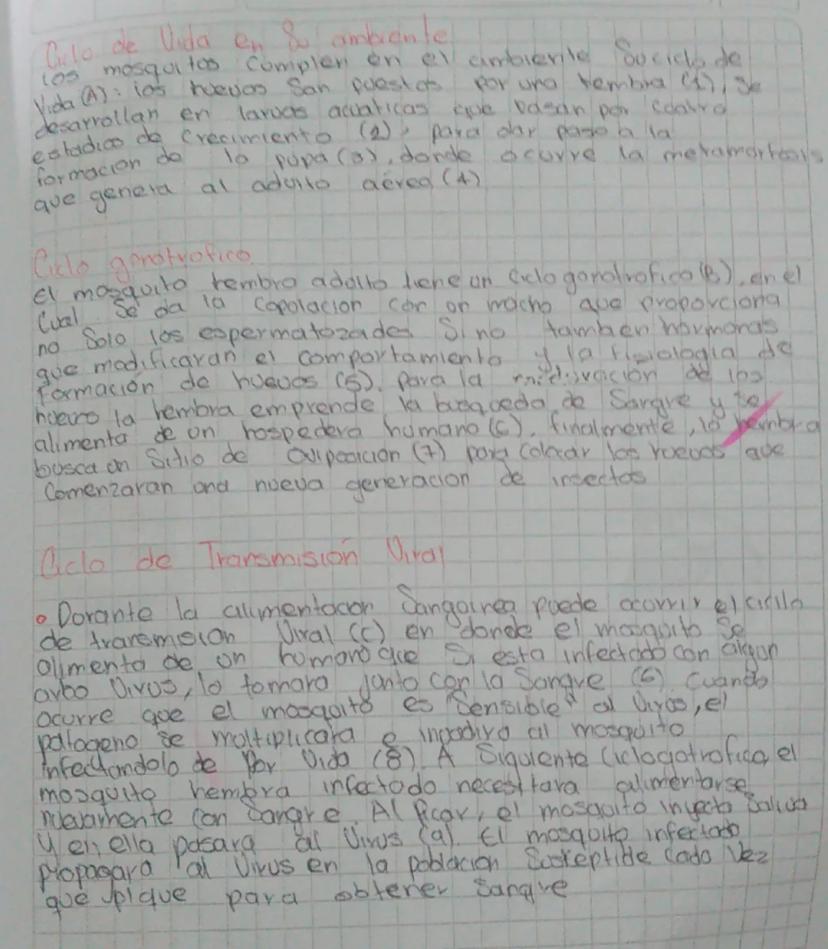 Ciclo de Vida en Su ambiente
los mosquitos complen en el ambiente Su ciclo de
Vida (A): los huevos San puestos por una hembra (1), Se
desarrollan en larvas acuaticas que pasan por cuatro
estadios de crecimiento (2), para dar paso a la
formacion de la pupa (3), donde ocurre la metamorfosis
que genera al adulto aérea (4)
Ciclo gonotrofico
el mosquito hembra adulto tiene un Ciclo gonotrofico (B), en el
Cual Se da la copolacion con un macho que proporciona
no Solo los espermatozoades Sino tambien hormonas
que modificaran el comportamiento y la fisiologia de
formación de huevos (5). Para la de los
huevo la hembra emprende la busqueda de Sangre y se
alimenta de un hospedero humano (6). finalmente, la hembra
busca un Sitio de Oviposicion (7) para colocar los huevos que
Comenzaran una nueva generacion de insectos
Ciclo de Transmisión Viral
• Dorante la alimentacon Sanguinea puede ocorrir el ciclo
de transmision Viral (c) en donde el mosquito Se
alimenta de un humano que Si esta infectado con algun
arbo Virus, lo tomara junto con la Sangre (6) Cuando
ocurre que el mosquito es "Sensible" al Virus, el
patogeno Se moltiplicara e al mosquito
infectandolo de Por Vida (8). A Siguiente Ciclogotrofico, el
mosquito hembra infectado necesitara alimentarse
nuevamente con Sangre. Al Picar, el mosquito inyecta Saliva
y en ella pasara al Virus (9). El mosquito infectado
propagara al Virus en la poblacion Susceptible Cada Vez
que pique para obtener Sangre